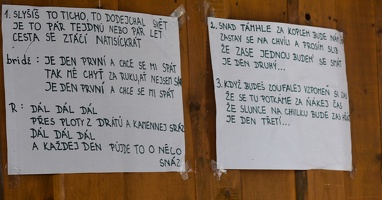 1. SLYŠÍŠ TO TICHO, TO DODEJCHAL SVĚT
JE TO PÁR TEJDNŮ NEBO PÁR LET
CESTA SE ZTÁCÍ NATISÍCKRÁT
bridge: JE DEN PRVNÍ A CHCE SE MI SPÁT
TAK MĚ CHYŤ ZA RUKU, AŤ NEJSEM SÁM
JE DEN PRVNÍ A CHCE SE MI SPÁT
R: DÁL DÁL DÁL
PŘES PLOTY Z DRÁTŮ A KAMENNEJ SRÁZ
DÁL DÁL DÁL
A KAŽDEJ DEN PŮJDE TO O NĚCO
SNÁZ
2. SNAD TÁMHLE ZA KOPCEM BUDE
ZASTAV SE NA CHVÍLI A PROSÍM SLIB
ŽE ZASE JEDNOU BUDEM SE SMÁT
JE DEN DRUHÝ...
3. KDYŽ BUDEŠ ZOUFALEJ VZPOMEŇ SI
ŽE SE TU POTKÁME ZA ŇÁKEJ ČAS
ŽE SLUNCE NA CHVILKU BUDE ZAS
JE DEN TŘETÍ...